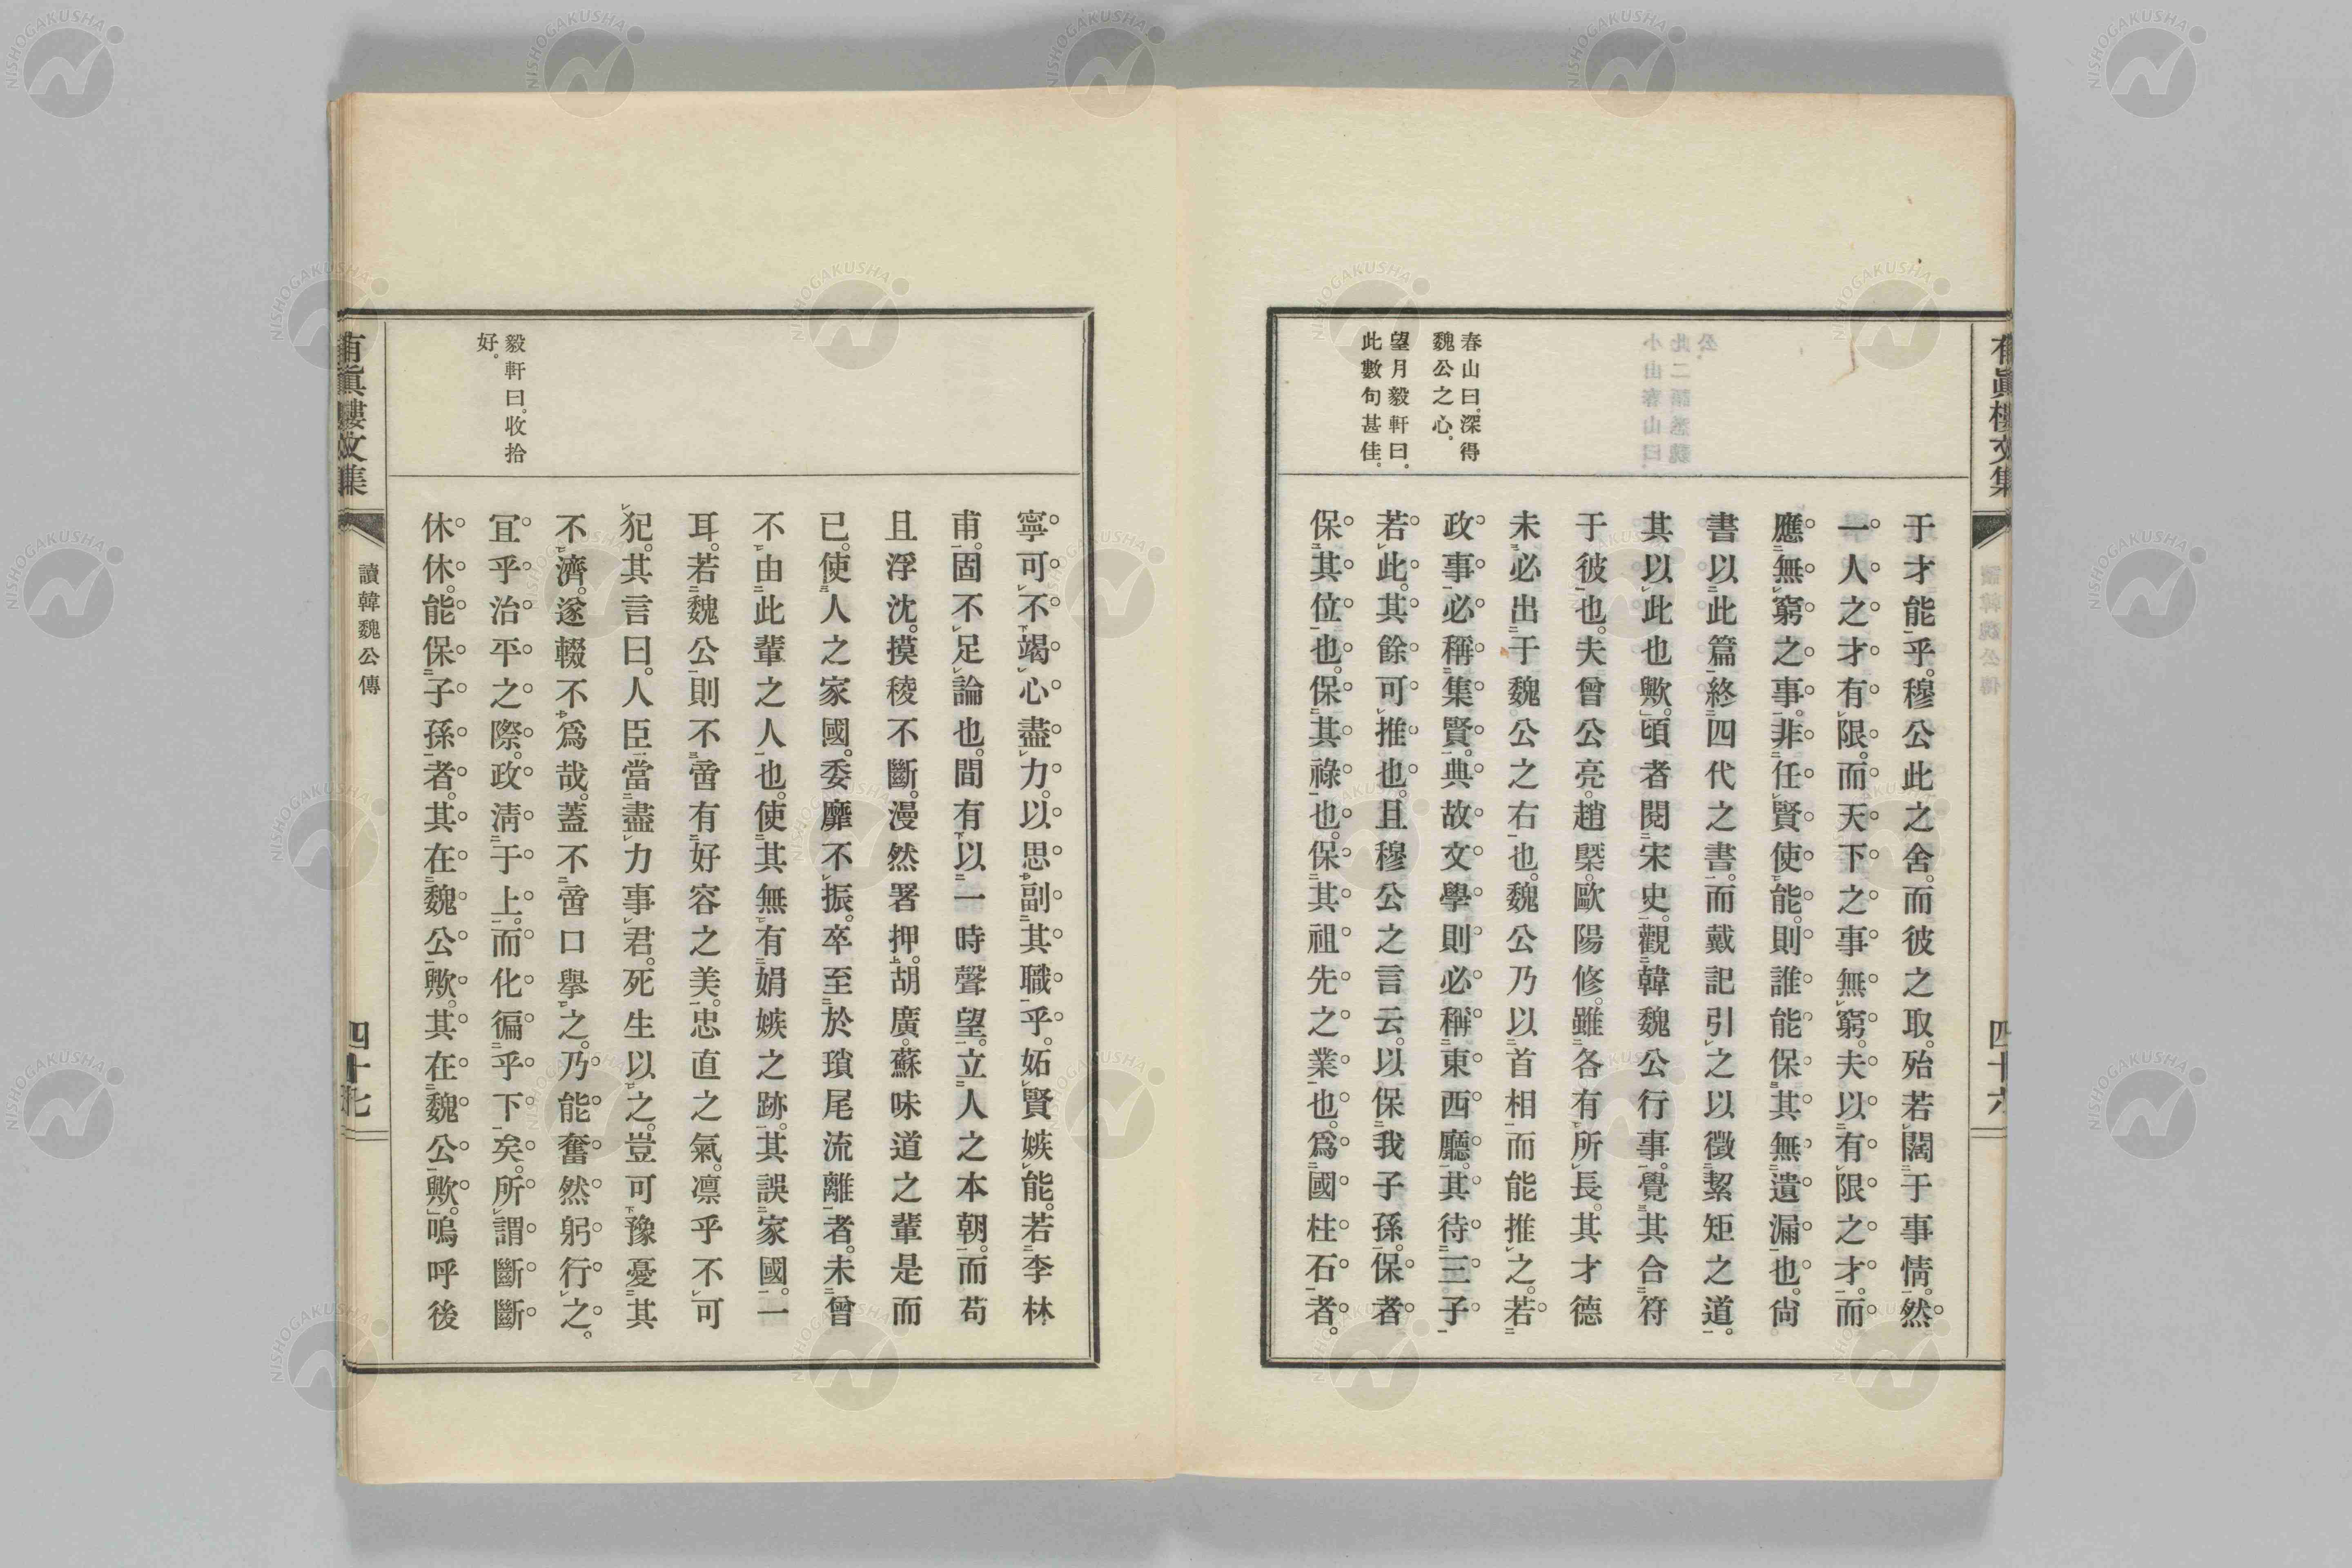 有眞樓文集
四十六
春山曰。深得
魏公之心。
望月毅軒曰。
此數句甚佳。
于才能乎。穆公此之舍。而彼之取。殆若闊于事情。然
一人之才有限。而天下之事無窮。夫以有限之才。而
應無窮之事。非任賢使能。則誰能保其無遺漏也。尙
書以此篇終四代之書。而戴記引之以徵絜矩之道。
其以此也歟。頃者閱宋史。觀韓魏公行事。覺其合符
于彼也。夫曾公亮。趙槩。歐陽修。雖各有所長。其才德
未必出于魏公之右也。魏公乃以首相而能推之。若
政事必稱集賢。典故文學則必稱東西廳。其待三子
若此。其餘可推也。且穆公之言云。以保我子孫。保者
保其位也。保其祿也。保其祖先之業也。爲國柱石者。
寧可不竭心盡力。以思副其職乎。妬賢嫉能。若李林
甫。固不足論也。間有以一時聲望。立人之本朝。而苟
且浮沈。摸稜不斷。漫然署押。胡廣。蘇味道之輩是而
已。使人之家國。委靡不振。卒至於瑣尾流離者。未曾
不由此輩之人也。使其無有娟嫉之跡。其誤家國。一
耳。若魏公則不啻有好容之美。忠直之氣。凛乎不可
犯。其言曰。人臣當盡力事君。死生以之。豈可豫憂其
不濟。遂輟不爲哉。蓋不啻口擧之。乃能奮然躬行之。
宜乎治平之際。政淸于上。而化徧乎下矣。所謂斷斷
休休。能保子孫者。其在魏公歟。其在魏公歟。嗚呼後
毅軒曰。收拾
好。
有眞樓文集
讀韓魏公傳
四十七
NISHOGAKUSHA